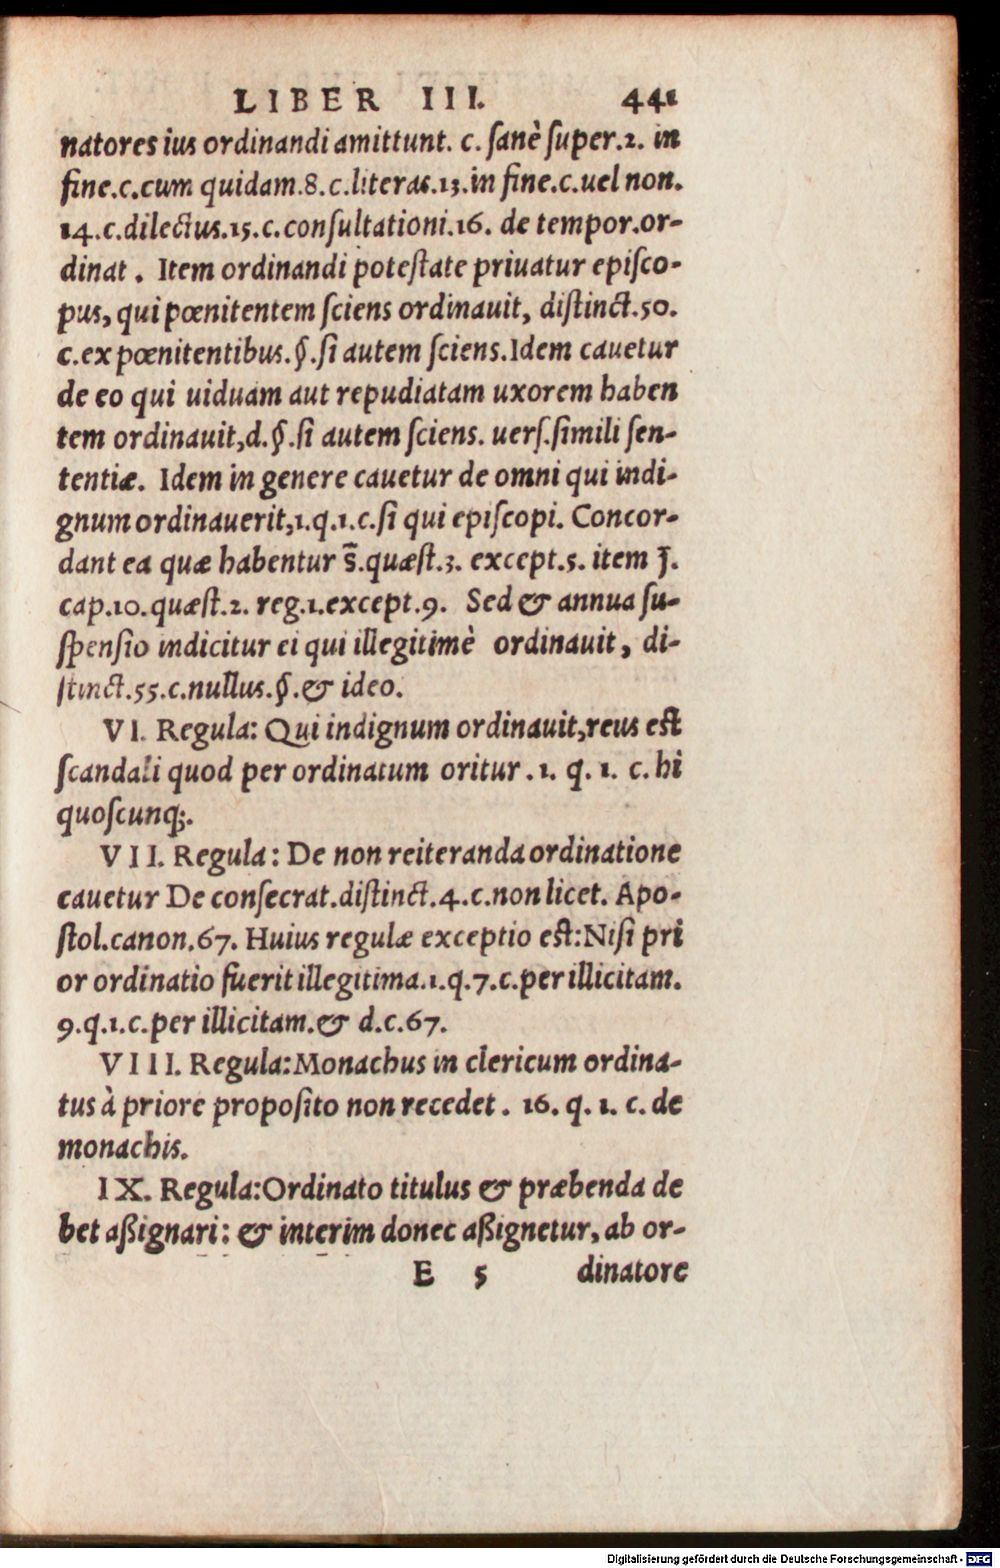 LIBER III. 441
natores ius ordinandi amittunt. c. ſanè ſuper.2. in
fine.c.cum quidam.8.c.literas.13.in fine.c.uel non.
14.c.dilectus.15.c.conſultationi.16. de tempor.or-
dinat. Item ordinandi poteſtate priuatur epiſco-
pus, qui pœnitentem ſciens ordinauit, diſtinct.50.
c.ex pœnitentibus.§.ſi autem ſciens.Idem cauetur
de eo qui uiduam aut repudiatam uxorem haben
tem ordinauit,d.§.ſi autem ſciens. uerſ.ſimili ſen-
tentiæ. Idem in genere cauetur de omni qui indi-
gnum ordinauerit,1.q.1.c.ſi qui epiſcopi. Concor-
dant ea quæ habentur s̄.quæſt.3. except.5. item J̄.
cap.10.quæſt.2. reg.1.except.9. Sed & annua ſu-
ſpenſio indicitur ei qui illegitimè ordinauit, di-
ſtinct.55.c.nullus.§.& ideo.
VI. Regula: Qui indignum ordinauit,reus eſt
ſcandali quod per ordinatum oritur. 1. q. 1. c. hi
quoſcunq;.
VII. Regula: De non reiteranda ordinatione
cauetur De conſecrat.diſtinct.4.c.non licet. Apo-
ſtol.canon.67. Huius regulæ exceptio eſt:Niſi pri
or ordinatio fuerit illegitima.1.q.7.c.per illicitam.
9.q.1.c.per illicitam.& d.c.67.
VIII. Regula:Monachus in clericum ordina-
tus à priore propoſito non recedet. 16. q. 1. c. de
monachis.
IX. Regula:Ordinato titulus & præbenda de
bet aßignari: & interim donec aßignetur, ab or-
E 5 dinatore
Digitalisierung gefördert durch die Deutsche Forschungsgemeinschaft - DFG